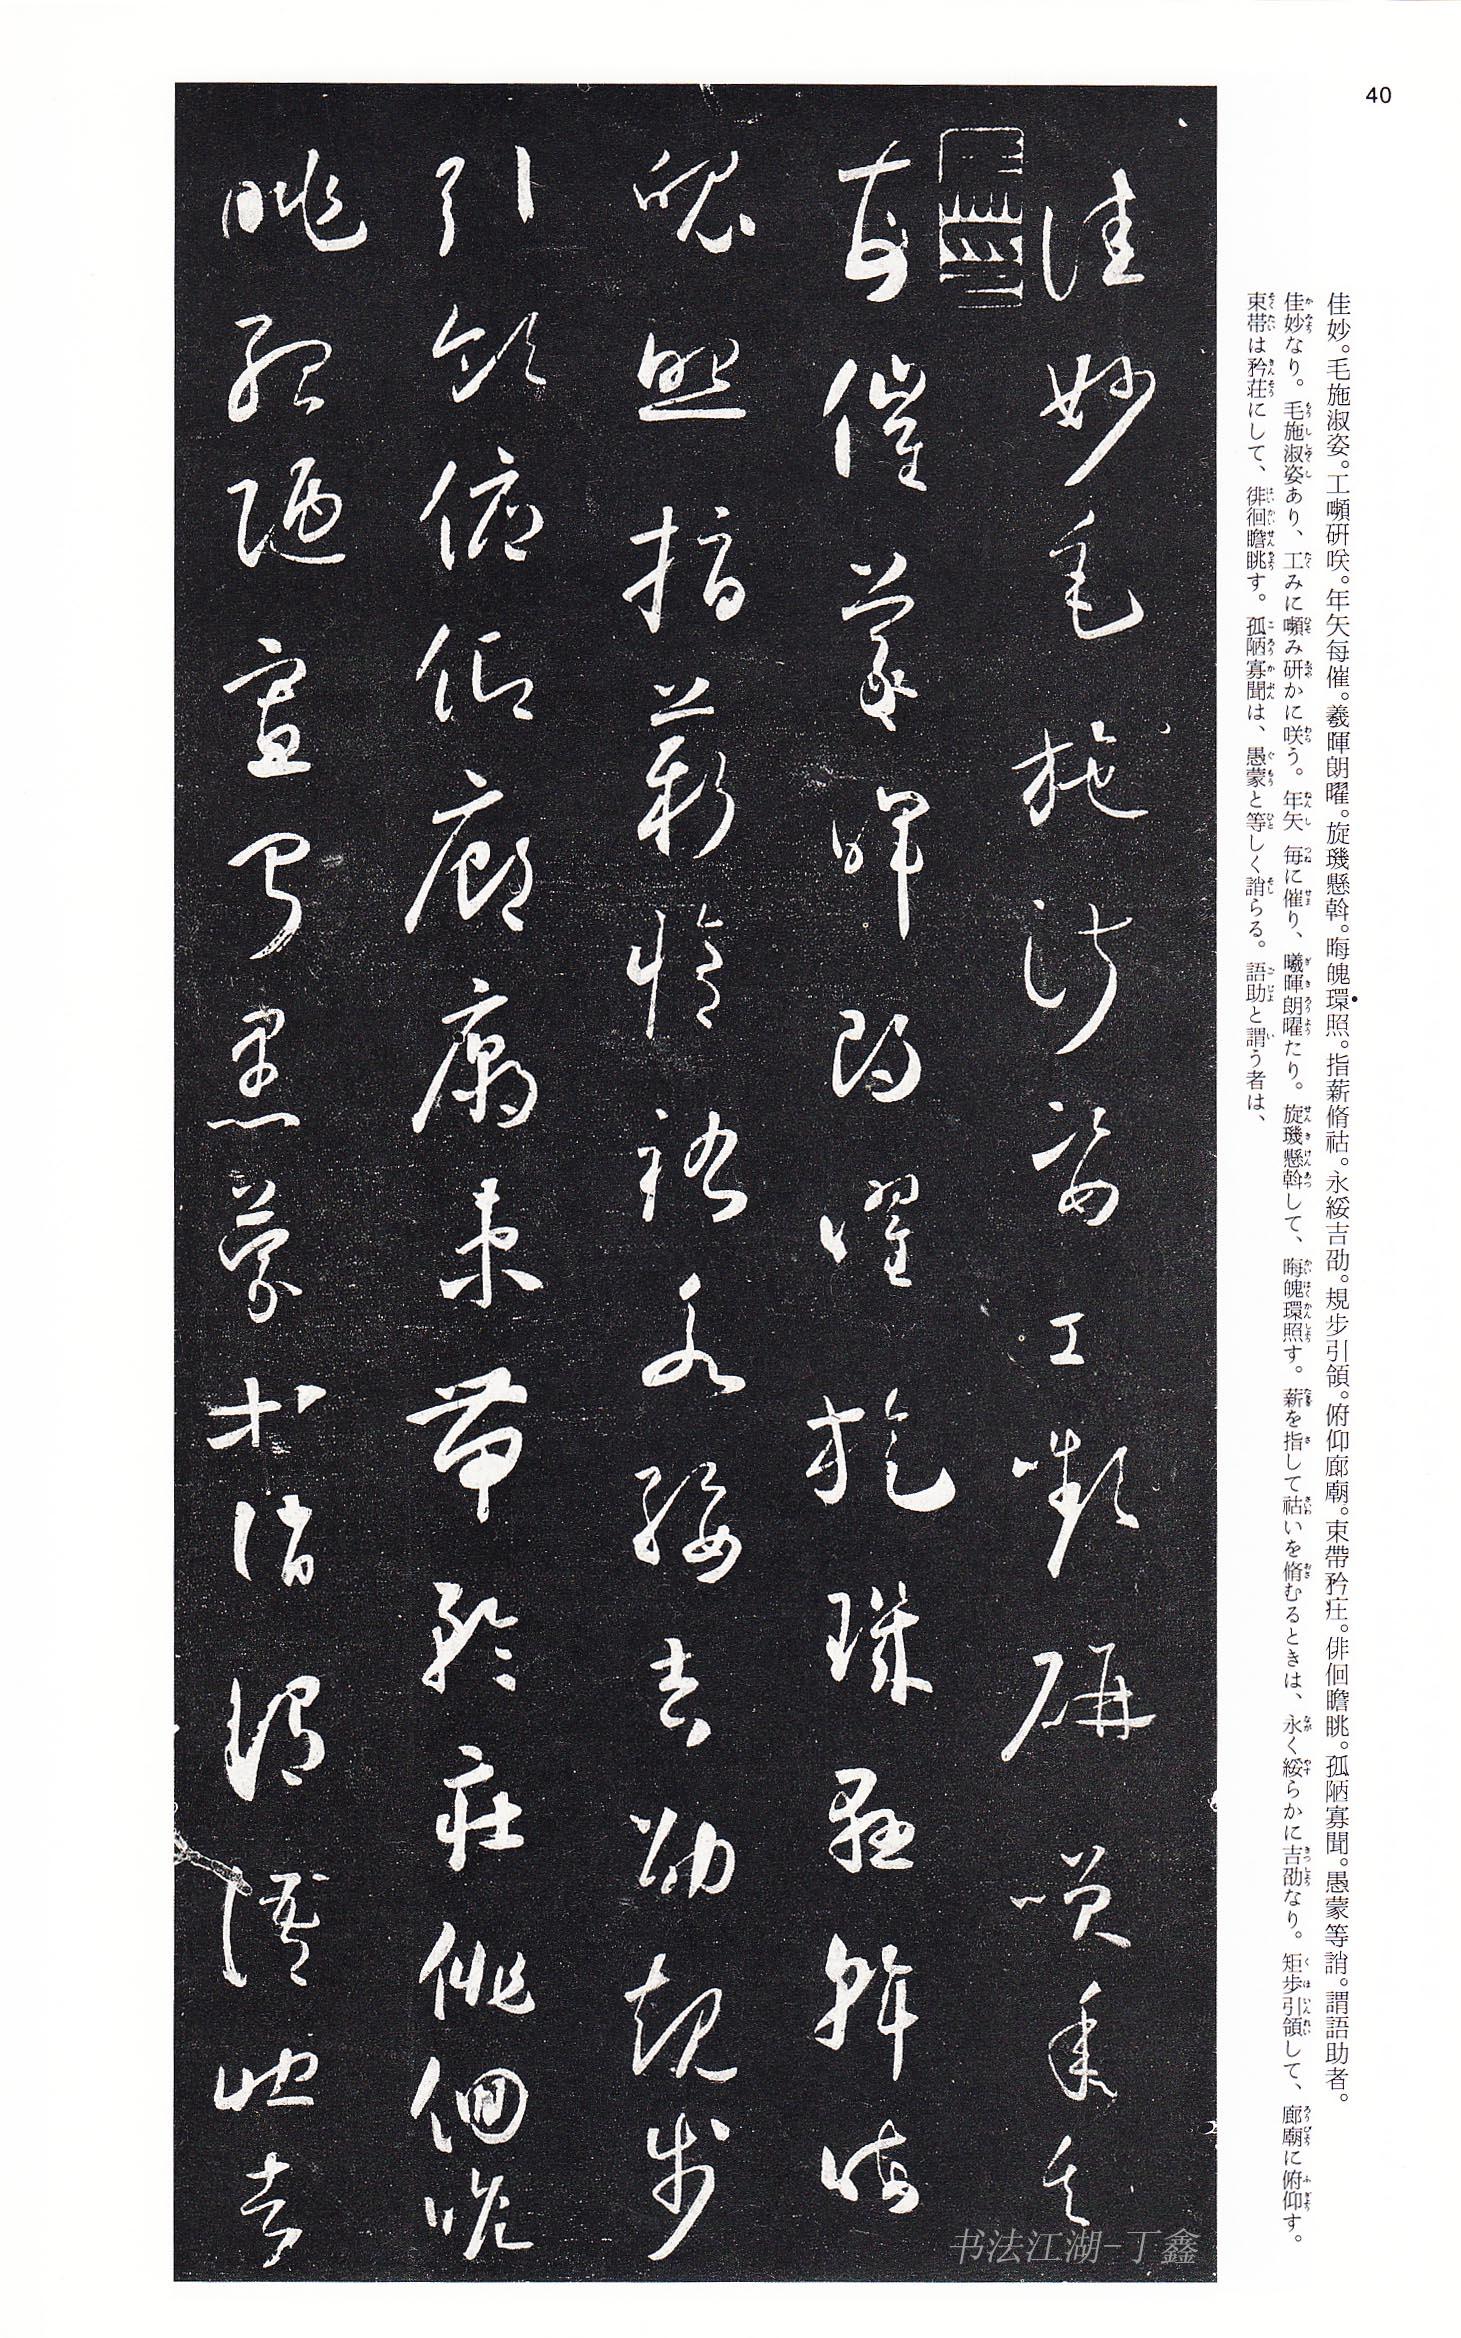 40
佳妙。毛施淑姿。工嚬研咲。年矢每催。羲暉朗曜。旋璣懸斡。晦魄環照。指薪脩祜。永綏吉劭。規步引領。俯仰廊廟。束帶矜庄。俳佪瞻眺。孤陋寡聞。愚蒙等誚。謂語助者。
佳妙なり。毛施淑姿あり、工みに嚬み研かに咲う。年矢毎に催り、曦暉朗曜たり。旋璣懸斡して、晦魄環照す。薪を指して祜いを脩むるときは、永く綏らかに吉劭なり。矩歩引領して、廊廟に俯仰す。
束帯は矜荘にして、徘徊瞻眺す。孤陋寡聞は、愚蒙と等しく誚らる。語助と謂う者は、
佳妙毛施淑姿工嚬研咲年矢
每催羲暉朗曜旋璣懸斡晦
魄照指薪脩祜永綏吉劭規步
引領俯仰廊廟束帶矜庄俳佪瞻
眺孤陋寡聞愚蒙等誚謂語助者
书法江湖-丁鑫